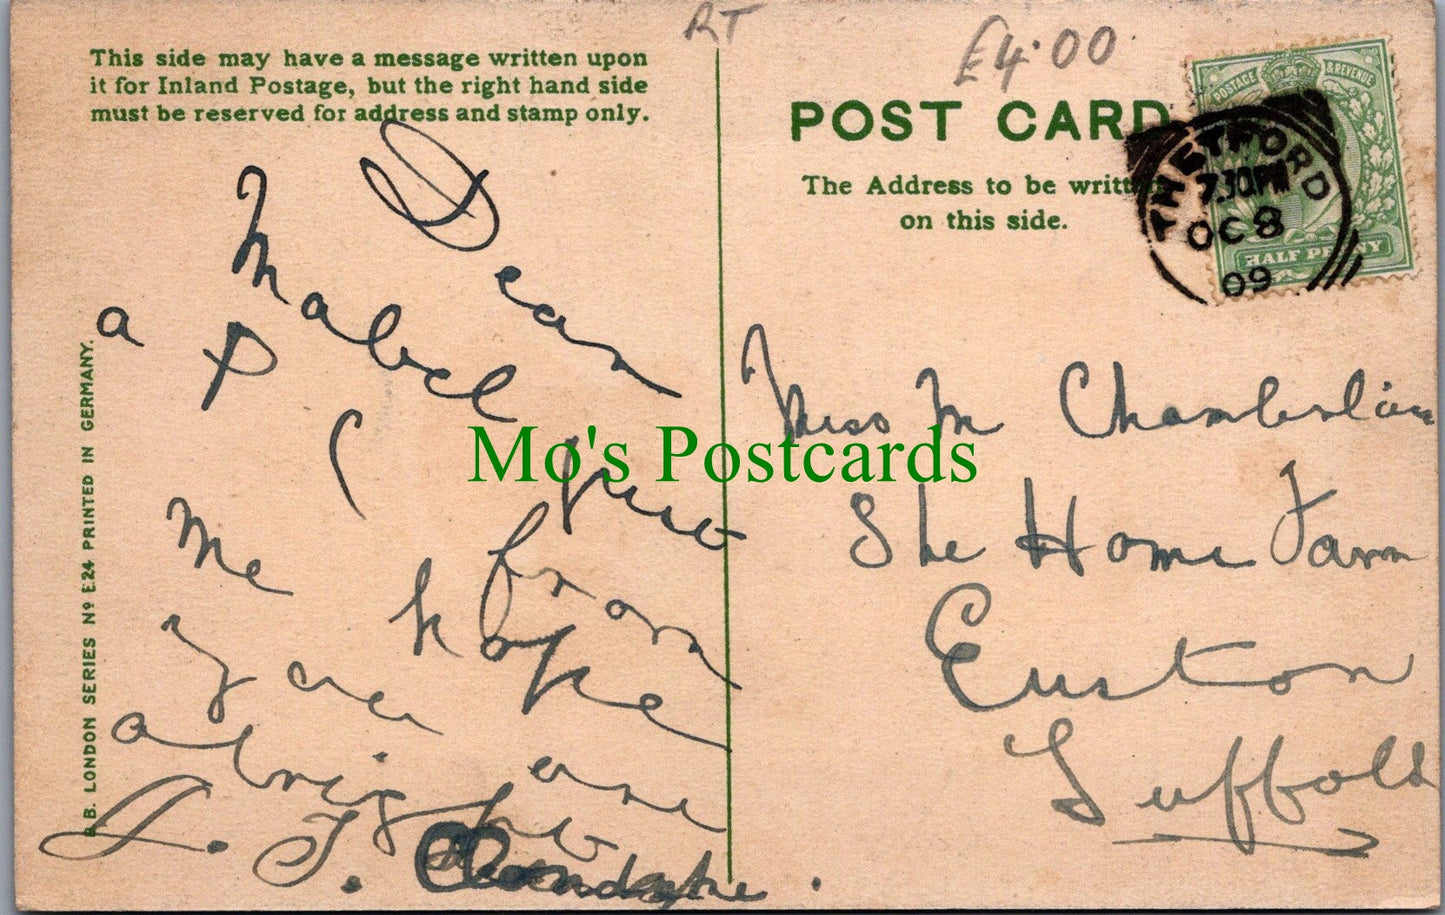 RT
£4.00
This side may have a message written upon
it for Inland Postage, but the right hand side
must be reserved for address and stamp only.
POST CARD
The Address to be written
on this side.
POSTAGE & REVENUE
HALF PENNY
THETFORD
7.30PM
OC 8
09
Dear
Mabel just
a P C from
me hope
you are
alright
J. T.
Miss M Chamberlain
The Home Farm
Euston
Suffolk
B.B. LONDON SERIES No E24 PRINTED IN GERMANY.
Mo's Postcards